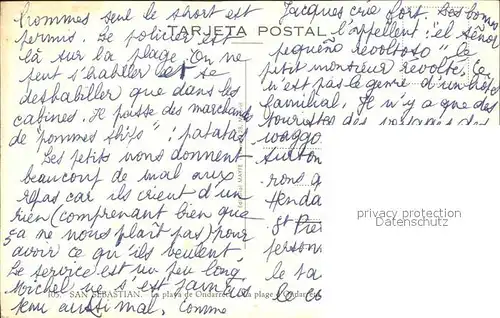 hommes seul le short est
permis. Le policier est
là sur la plage. On ne
peut s'habiller et se
deshabiller que dans les
cabines. Il passe des marchands
de "pommes ships" : patatas
Les petits nous donnent
beaucoup de mal aux
repas car ils crient d'un
rien (comprenant bien que
ça ne nous plait pas) pour
avoir ce qu'ils veulent.
Le service est un peu long
Michel ne s'est jamais
tenu aussi mal. Comme
TARJETA POSTAL
Jacques crie fort. Les bonnes
l'appellent : el señor
pequeño revoltoso " le
petit monsieur révolté. Ce
n'est pas le genre d'un hôtel
familial. Il n'y a que des
touristes des voyages des
waggo
surton
rons g
Henda
St Pie
person
le ta
la co
privacy protection
105. SAN SEBASTIAN. La playa de Ondarreta. La plage